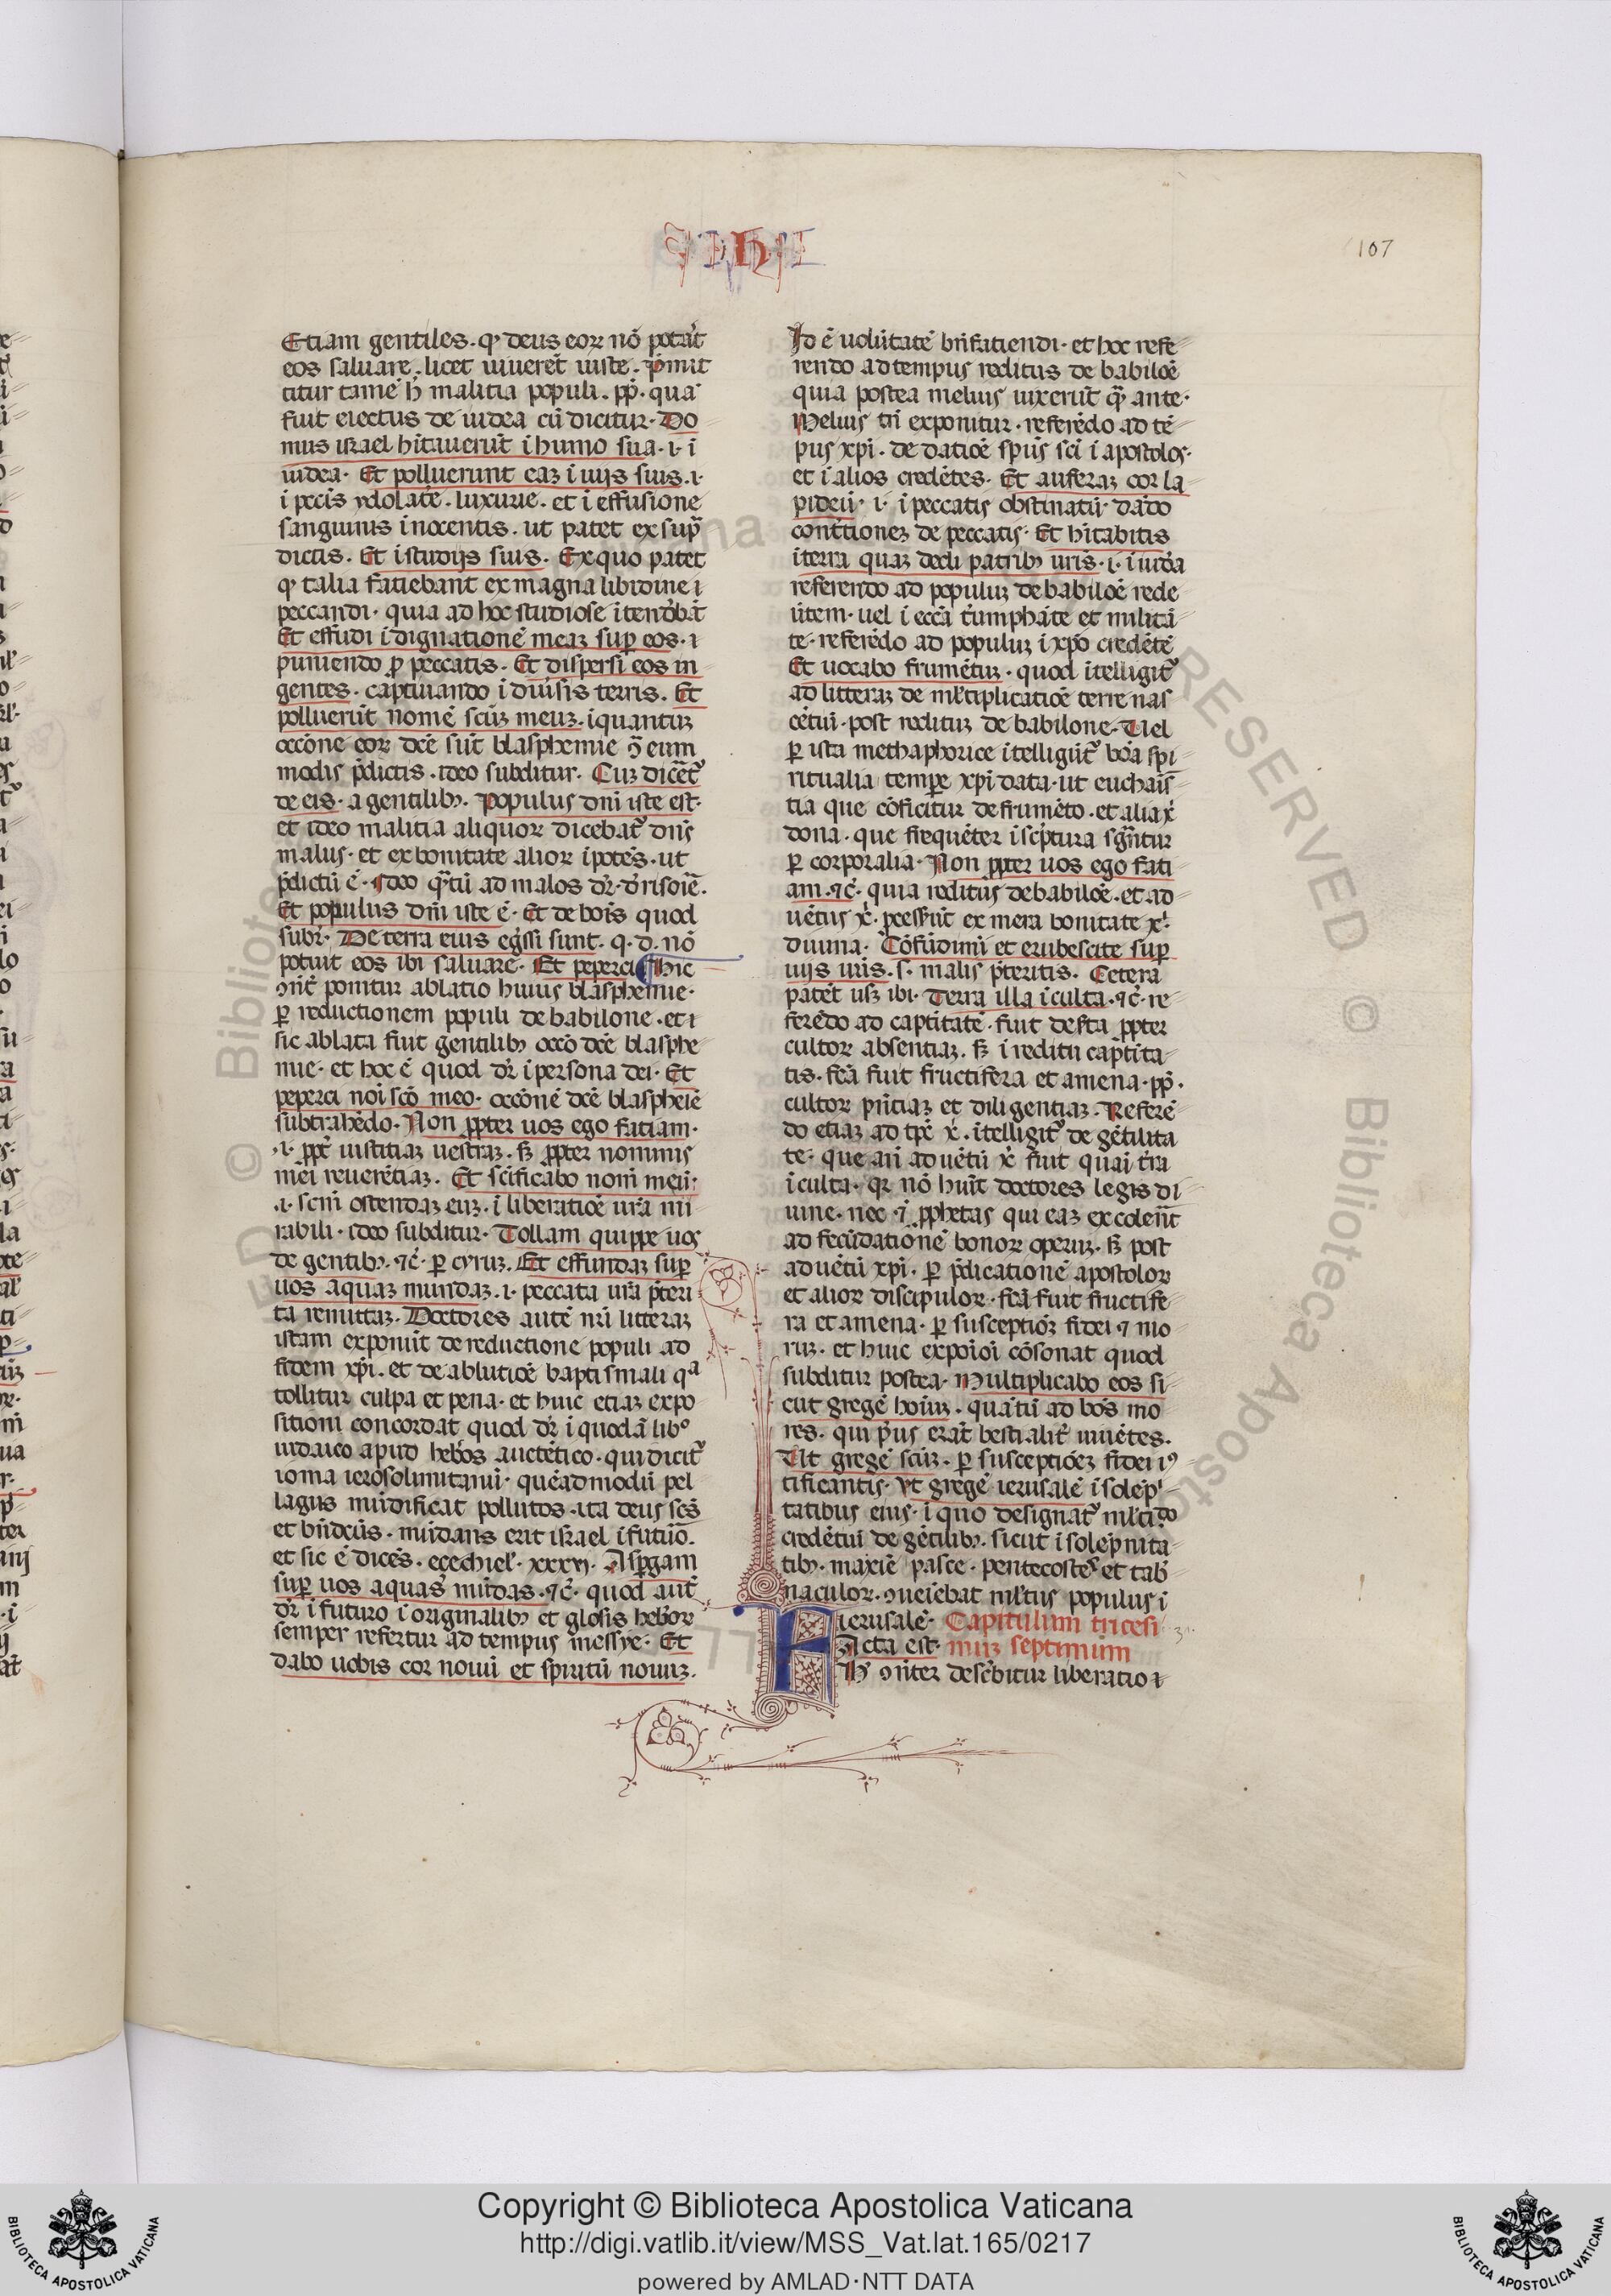 107
Etiam gentiles. qͥ deus eoꝝ nō potat̄
eos saluare. licet uiuerēt iuste. p̄mit
titur tamē h̄ malitia populi. pp̄. qua
fuit eiectus de iudea cū dicitur. Do
mus israel hītauerūt ī humo sua. i. ī
iudea. Et polluerunt eaꝫ ī uijs suis. i.
ī pccīs ydolatē. luxurie. et ī effusione
sanguinis īnocentis. ut patet ex sup̄
dictis. Et ī studijs suis. Ex quo patet
qͥ talia fatiebant ex magna libidine ī
peccandi. quia ad hoc studiose ītendebāt
Et effudi īdignationē meaꝫ suꝑ eos. ī
puniendo ꝓ peccatis. Et dispersi eos in
gentes. captiuando ī diūsis terris. Et
polluerūt nomē scūꝫ meuꝫ. īquantuꝫ
occōne eoꝝ dcē sūt blasphemie ꝯ̄ eum
modis p̄dictis. ideo subditur. Cuꝫ dicēt᷒
de eis. a gentilibꝫ. Populus dnī iste est.
et ideo malitia aliquoꝝ dicebat᷒ dn̄s
malus. et ex bonitate alioꝝ īpotēs. ut
p̄dictū ē. Ideo q̄tū ad malos dr̄. dr̄isoīe.
Et populus dnī iste ē. Et de boīs quod
subr̄. De terra eius eg̃ssi sunt. q. d. nō
potuit eos ibi saluare. Et peperci. Hic
ꝯn̄t ponitur ablatio huius blasphemie.
ꝑ reductionem populi de babilone. et ī
sic ablata fuit gentilibꝫ occō dcē blasphe
mie. et hoc ē quod dr̄ ī persona dei. Et
peperci noī scō meo. occōnē dcē blaspheīe
subtrahēdo. Non ꝓpter uos ego fatiam.
.i. ꝓpt̄ iustitiaꝫ uestraꝫ. sꝫ ꝓpter nominis
mei reuerētiaꝫ. Et scificabo nom̄ meū.
.i. scm̄ ostendaꝫ euꝫ. ī liberatiōe ur̄a mi
rabili. ideo subditur. Tollam quippe uos
de gentibꝫ. ⁊c̄. ꝑ cyruꝫ. Et effundaꝫ suꝑ
uos aquaꝫ mundaꝫ. i. peccata ur̄a p̄teri
ta remittaꝫ. Doctores autē nr̄i litteraꝫ
istam exponūt de reductione populi ad
fidem xp̄i. et de ablutiōe baptismali qᵃ
tollitur culpa et pena. et huic etiaꝫ expo
sitioni concordat quod dr̄ ī quodā libº
iudaico apud hebōs auctētico. qui dicit᷒
ioma ierosolimitanū. quēadmodū pel
lagus mūdificat pollutos. ita deus scs̄
et bn̄dcūs. mūdans erit israel ī futuō.
et sic ē dicēs. ecechiel̄. xxxvi. Asꝑgam
suꝑ uos aquas mūdas. ⁊c̄. quod aut̄
dr̄ ī futuro ī originalibꝫ et glosis hebroꝝ
semper refertur ad tempus messye. Et
dabo uobis cor nouū et spiritū nouuꝫ.
Id ē uolūtatē bn̄fatiendi. et hoc refe
rendo ad tempus reditus de babilōe
quia postea melius uixerūt q̄ ante.
Melius tn̄ exponitur. referēdo ad tē
pus xp̄i. de datiōe sp̄us sci ī apostolos.
et ī alios credētes. Et auferaꝫ cor la
pideū. i. ī peccatis obstinatū. dādo
cont̄tioneꝫ de peccatis. Et hītabitis
ī terra quaꝫ dedi patribꝫ ur̄is. i. ī iudēa
referendo ad populuꝫ de babilōe rede
ūtem. uel ī eccā t̄umphāte et militā
te. referēdo ad populuꝫ ī xp̄o credētē
Et uocabo frumētuꝫ. quod ītelligit᷒
ad litteraꝫ de ml̄tiplicatiōe terre nas
cētiū. post reditūꝫ de babilone. Uel
ꝑ ista methaphorice ītelligūt᷒ bōa spi
ritualia tempe xp̄i data. ut euchais̄
tia que cōficitur de frumēto. et alia x̄
dona. que frequēter ī scp̄tura sgn̄tur
ꝑ corporalia. Non ꝓpter uos ego fati
am. ⁊c̄. quia reditus de babilōe. et ad
uētus x̄. ꝓcessūt ex mera bonitate x̄
diuina. Cōfūdimī et erubescite suꝑ
uijs ur̄is. s. malis p̄teritis. Cetera
patēt usꝫ ibi. Terra illa īculta. ⁊c̄. re
ferēdo ad captitatē. fuit deserta ꝓpter
cultoꝝ absentiaꝫ. sꝫ ī reditu captita
tis. fcā fuit fructifera et amena. pp̄.
cultoꝝ pn̄tiaꝫ et diligentiaꝫ. Referē
do etiaꝫ ad tꝑē x̄. ītelligit᷒ de gētilita
te. que an̄ aduētū x̄ fuit quaī tr̄a
īculta. qꝛ nō hūit doctores legis di
uine. nec ī prphetas qui eaꝫ excolerēt
ad fecūdationē bonoꝝ operuꝫ. sꝫ post
aduētū xp̄i. ꝑ p̄dicationē apostoloꝝ
et alioꝝ discipuloꝝ. fcā fuit fructife
ra et amena. ꝑ susceptiōꝫ fidei ⁊ mo
ruꝫ. et huic expoīoī cōsonat quod
subditur postea. Multiplicabo eos si
cut gregē hoīuꝫ. quātū ad bōs mo
res. qui p̄us erāt bestialit̄ uiuētes.
Ut gregē scūꝫ. ꝑ susceptiōeꝫ fidei iᷤ
tificantis. Vt gregē ierusalē ī solēp̄
tatibus eius. ī quo designat᷒ ml̄titᵈᵒ
credētiū de gētilibꝫ. sicut ī solēpnita
tibꝫ. maxiē pasce. pentecostes̄ et tab̄
naculoꝝ. ꝯueīebat ml̄tus populus ī
ierusalē. Capitulum tricesi
FActa est. muꝫ septimum
Hᶜ ꝯn̄ter desc̄bitur liberatio ī
Copyright © Biblioteca Apostolica Vaticana
http://digi.vatlib.it/view/MSS_Vat.lat.165/0217
powered by AMLAD·NTT DATA